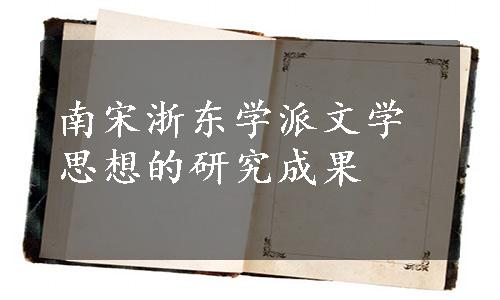 南宋浙东学派文学
思想的研究成果